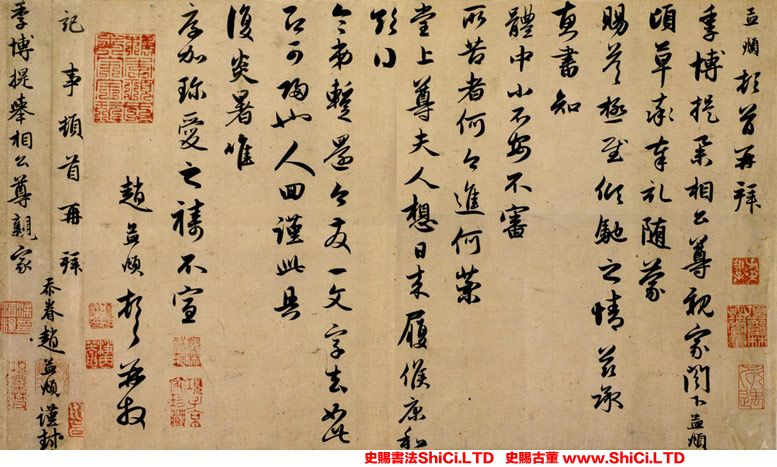 孟頫頓首再拜
季博提舉相公尊親家閣下孟頫
頃草率奉札隨蒙
賜答極至傾馳之情茲承
惠書知
體中小不安不審
所苦者何今進何藥
堂上尊夫人想日來履候康和
暫還今發一文字去如此
即可歸也人回謹此具
復炎暑唯
厚加珍愛之禱不宣
趙孟頫頓首再拜
記事頓首再拜
季博提舉相公尊親家
忝眷趙孟頫謹封
史賜書法ShiCi.LTD 史賜古董 www.ShiCi.LTD